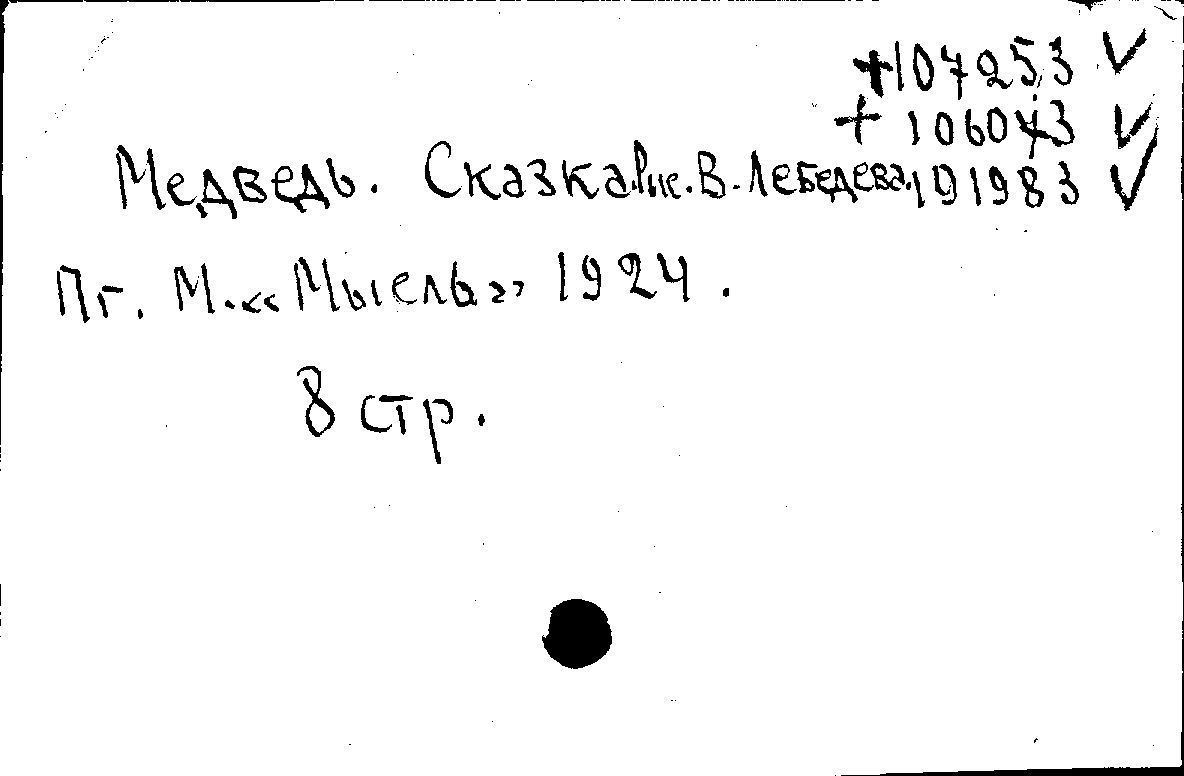 +107253 ✓
+ 106043 ✓
Медведь. Сказка. Рис. В. Лебедева. 191983 ✓
Пг. М. «Мысль» 1924.
8 стр.